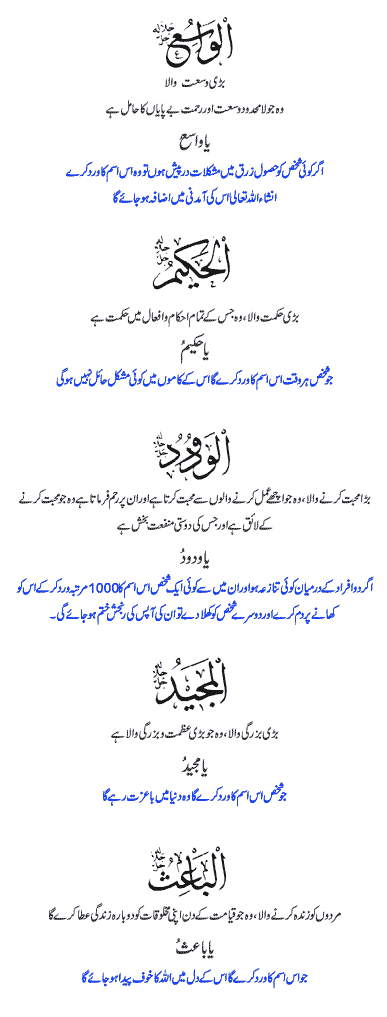 الْوَاسِعُ جل جلالہ
بڑی وسعت والا
وہ جو لامحدود وسعت اور رحمت بے پایاں کا حامل ہے
یا واسعُ
اگر کوئی شخص کو حصول زرق میں مشکلات درپیش ہوں تو وہ اس اسم کا ورد کرے
انشاء اللہ تعالیٰ اس کی آمدنی میں اضافہ ہو جائے گا
الْحَكِيمُ جل جلالہ
بڑی حکمت والا، وہ جس کے تمام احکام و افعال میں حکمت ہے
یا حکیمُ
جو شخص ہر وقت اس اسم کا ورد کرے گا اس کے کاموں میں کوئی مشکل حائل نہیں ہوگی
الْوَدُودُ جل جلالہ
بڑا محبت کرنے والا، وہ جو اچھے عمل کرنے والوں سے محبت کرتا ہے اور ان پر رحم فرماتا ہے وہ جو محبت کرنے
کے لائق ہے اور جس کی دوستی منفعت بخش ہے
یا ودودُ
اگر دو افراد کے درمیان کوئی تنازعہ ہو اور ان میں سے کوئی ایک شخص اس اسم کا 1000 مرتبہ ورد کر کے اس کو
کھانے پر دم کرے اور دوسرے شخص کو کھلا دے تو ان کی آپس کی رنجش ختم ہو جائے گی۔
الْمَجِيدُ جل جلالہ
بڑی بزرگی والا، وہ جو بڑی عظمت و بزرگی والا ہے
یا مجیدُ
جو شخص اس اسم کا ورد کرے گا وہ دنیا میں باعزت رہے گا
الْبَاعِثُ جل جلالہ
مردوں کو زندہ کرنے والا، وہ جو قیامت کے دن اپنی مخلوقات کو دوبارہ زندگی عطا کرے گا
یا باعثُ
جو اس اسم کا ورد کرے گا اس کے دل میں اللہ کا خوف پیدا ہو جائے گا